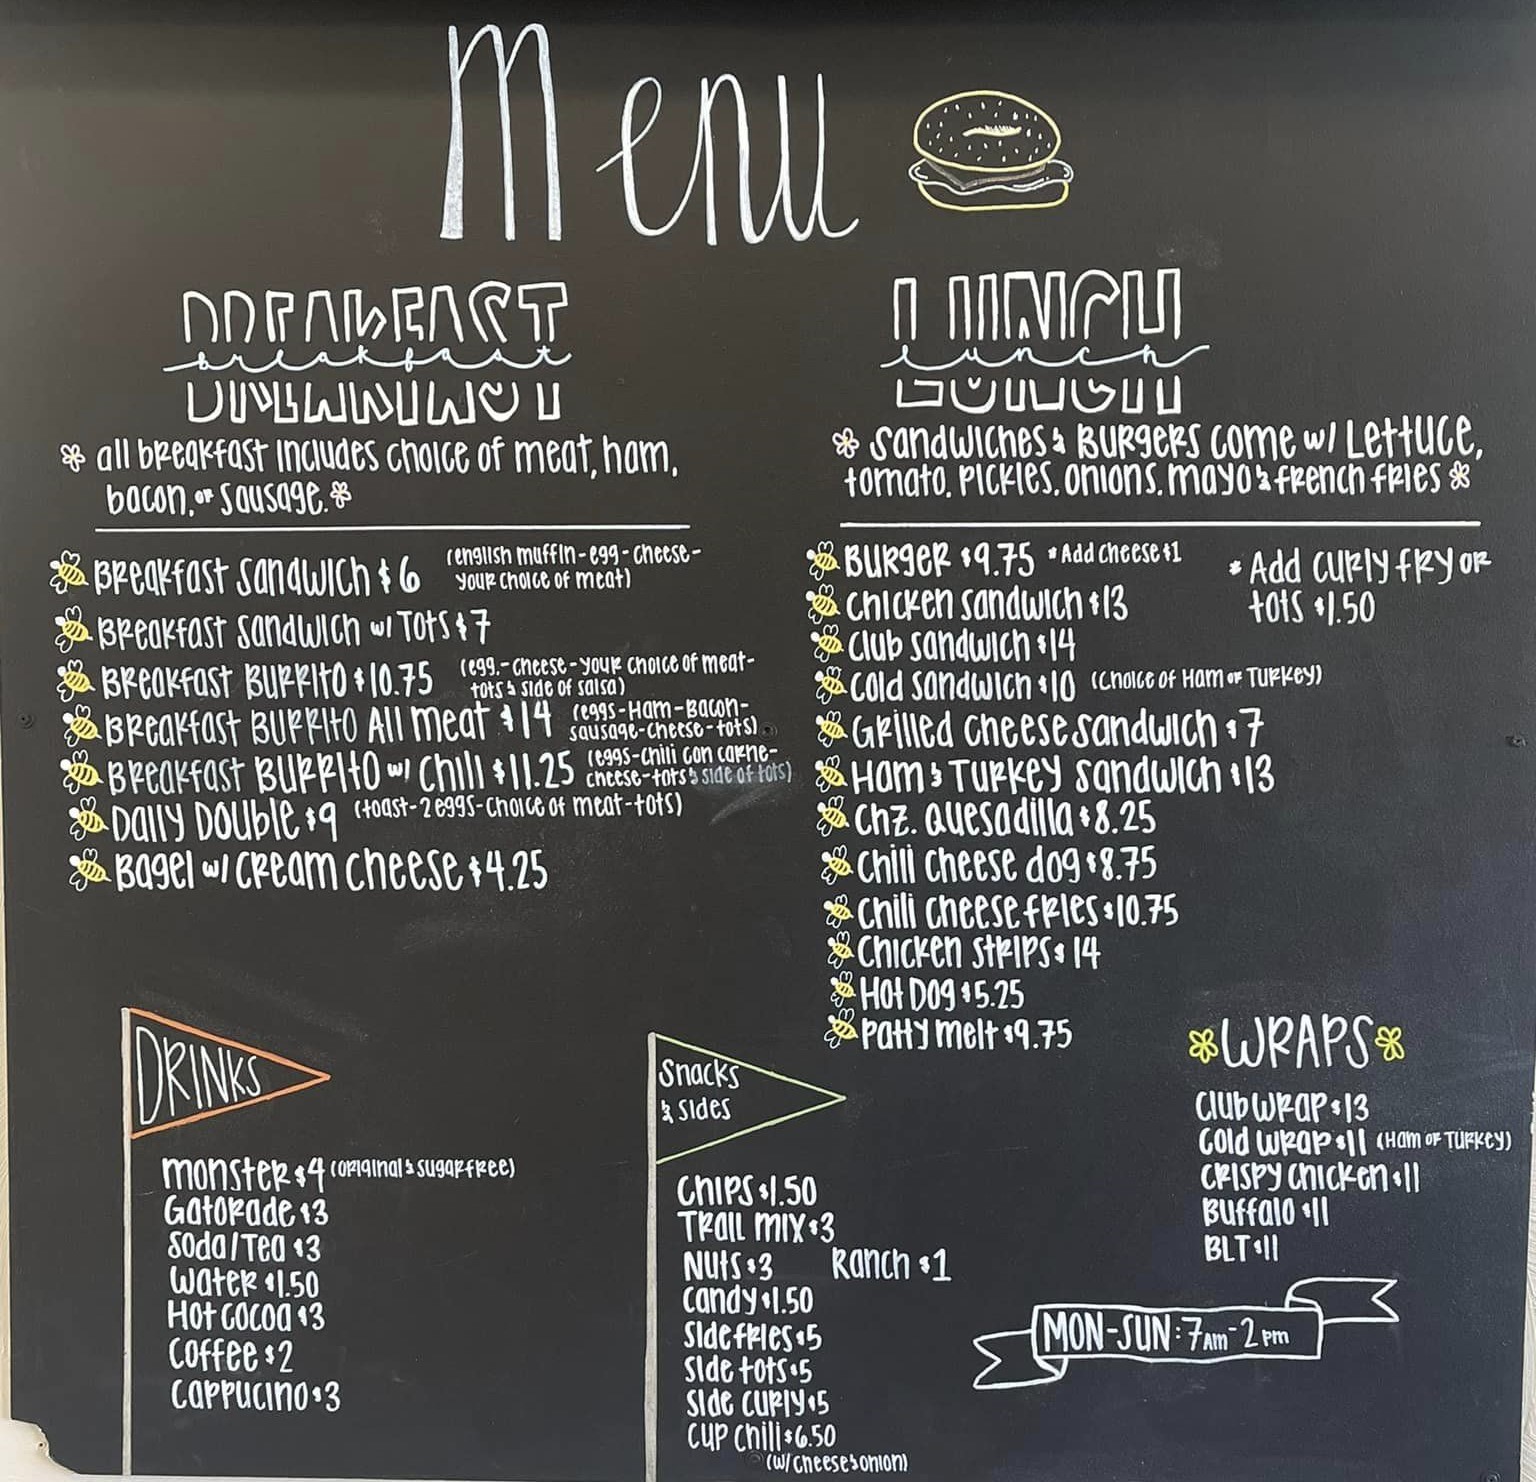 Menu
BREAKFAST
breakfast
all breakfast includes choice of meat, ham,
bacon, or sausage.
Breakfast Sandwich $6 (english muffin-egg-cheese-
your choice of meat)
Breakfast Sandwich w/ Tots $7
Breakfast Burrito $10.75 (egg.-cheese-your choice of meat-
tots & side of salsa)
Breakfast Burrito All meat $14 (eggs-Ham-Bacon-
sausage-cheese-tots)
Breakfast Burrito w/ Chili $11.25 (eggs-chili con carne-
cheese-tots & side of tots)
Daily Double $9 (toast-2eggs-choice of meat-tots)
Bagel w/ Cream Cheese $4.25
LUNCH
lunch
Sandwiches & Burgers come w/ Lettuce,
tomato, pickles, onions, mayo & french fries
Burger $9.75 *Add Cheese $1
* Add curly fry or
tots $1.50
Chicken Sandwich $13
Club Sandwich $14
Cold Sandwich $10 (Choice of Ham or Turkey)
Grilled Cheese Sandwich $7
Ham & Turkey Sandwich $13
Chz. Quesadilla $8.25
Chili Cheese dog $8.75
Chili Cheese fries $10.75
Chicken Strips $14
Hot Dog $5.25
Patty melt $9.75
DRINKS
monster $4 (original & sugarfree)
Gatorade $3
Soda/Tea $3
Water $1.50
Hot Cocoa $3
Coffee $2
Cappucino $3
Snacks
& Sides
Chips $1.50
Trail mix $3
Nuts $3 Ranch $1
Candy $1.50
Side fries $5
Side tots $5
Side curly $5
Cup Chili $6.50
(w/ Cheese & onion)
WRAPS
Club Wrap $13
Cold Wrap $11 (Ham or Turkey)
Crispy Chicken $11
Buffalo $11
BLT $11
MON-SUN: 7am-2pm